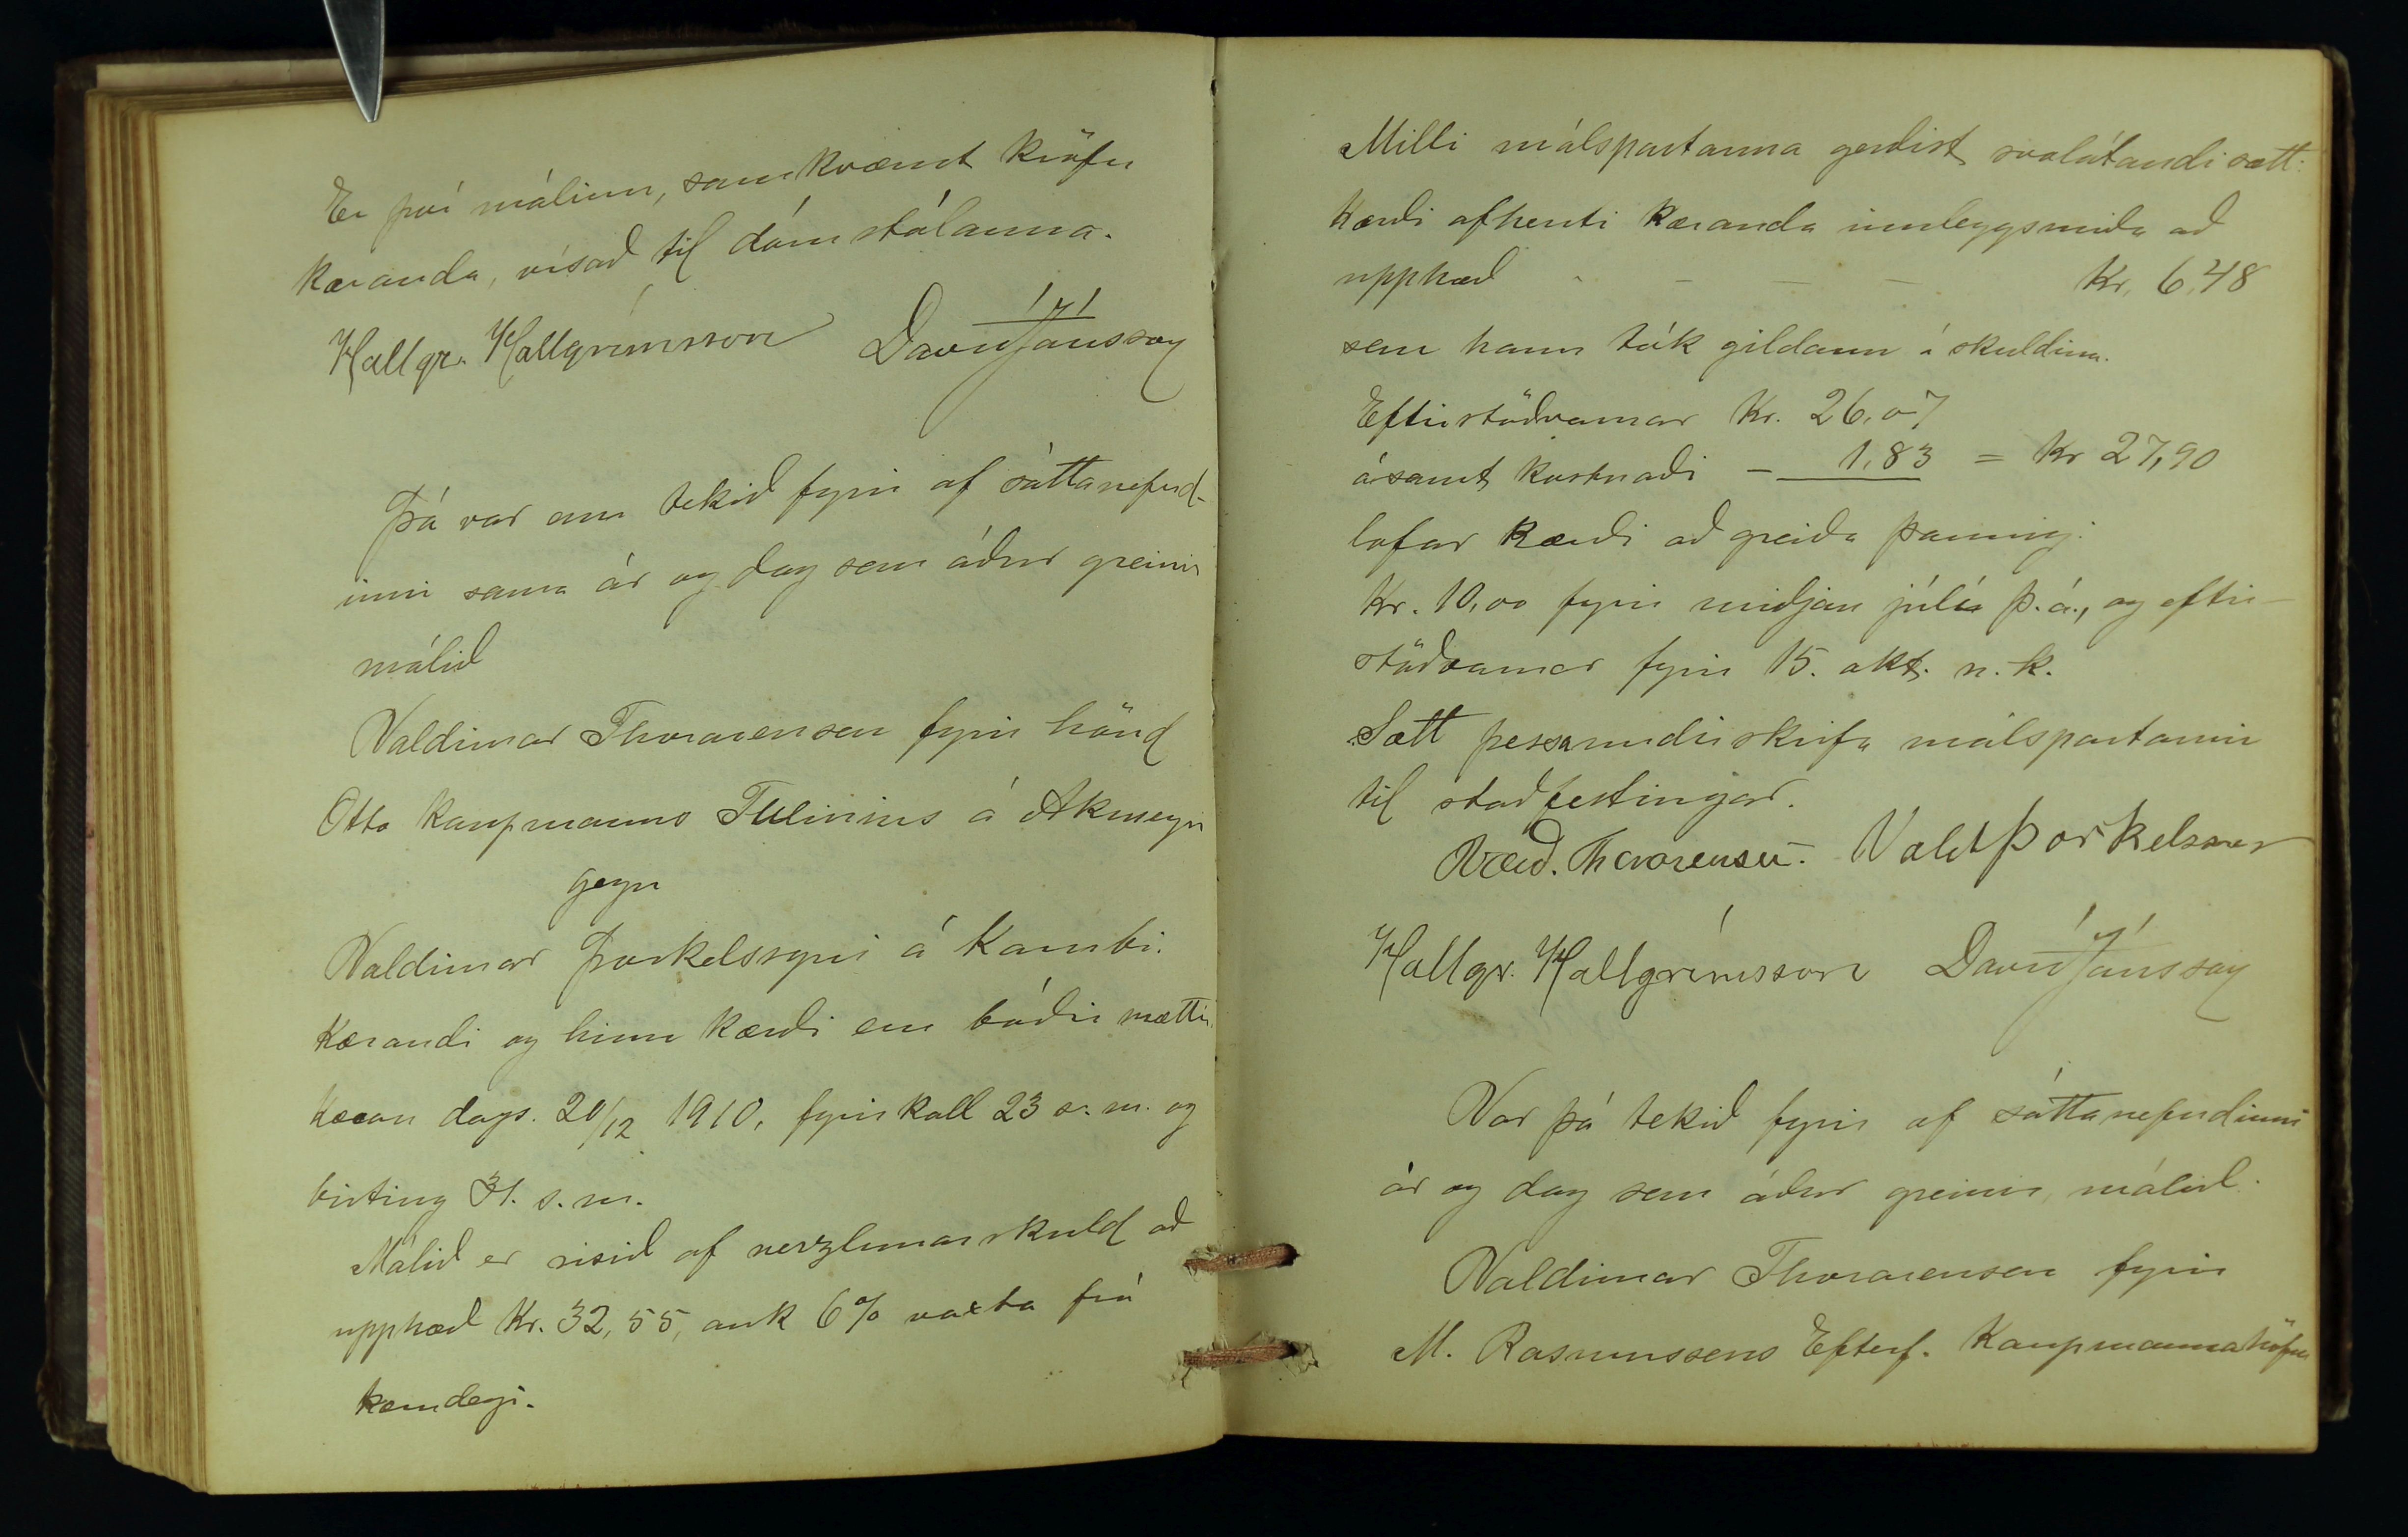 Er því málinu, samkvæmt kröfu
kæranda, vísað til dómstólanna.
Hallgr. Hallgrímsson Davíð Jónsson
Þá var enn tekið fyrir af sáttanefnd-
inni sama ár og dag sem áður greinir
málið
Valdimar Thorarensen fyrir hönd
Otto kaupmanns Tulinius á Akureyri
gegn
Valdimar Þorkelssyni á Kambi.
Kærandi og hinn kærði eru báðir mættir.
Kæran dags. 20/12 1910, fyrirkall 23 s. m. og
birting 31. s. m.
Málið er risið af verzlunarskuld að
upphæð Kr. 32,55, auk 6% vaxta frá
kærudegi.
Milli málspartanna gerðist svolátandi sætt:
Kærði afhenti kæranda innleggsmiða að
upphæð - - - - Kr. 6,48
sem hann tók gildann í skuldina.
Eftirstöðvarnar Kr. 26,07
ásamt kostnaði - 1,83 = Kr 27,90
lofar kærði að greiða þannig:
Kr. 10,00 fyrir miðjan júlí þ. á., og eftir-
stöðvarnar fyrir 15. okt. n. k.
Sætt þessa undirskrifa málspartarnir
til staðfestingar.
Vald. Thorarensen. Vald Þorkelsson
Hallgr. Hallgrímsson Davíð Jónsson
Var þá tekið fyrir af sáttanefndinni
ár og dag sem áður greinir, málið.
Valdimar Thorarensen fyrir
M. Rasmussens Efterf. Kaupmannahöfn